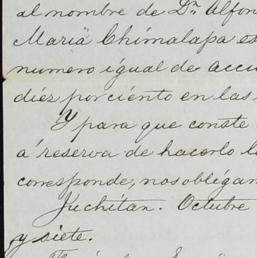 al nombre de Dn. Alfon
Maria Chimalapa es
numero igual de acci
diéz por ciento en las
Y para que conste
a' reserva de hacerlo lo
corresponde, nos obligan
Juchitan. Octubre
y siete.